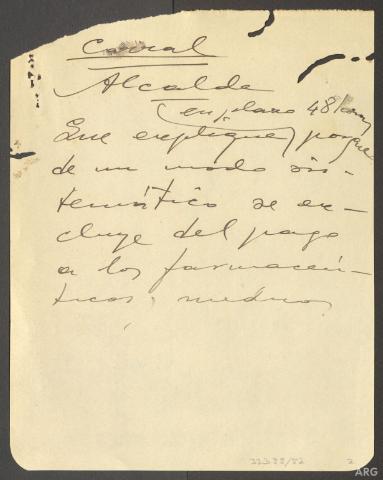 Corral
Alcalde
(en plazo 48 horas)
Que explique porque
de un modo sis-
temático se ex-
cluye del pago
a los farmacéu-
ticos, médicos
2
ARG